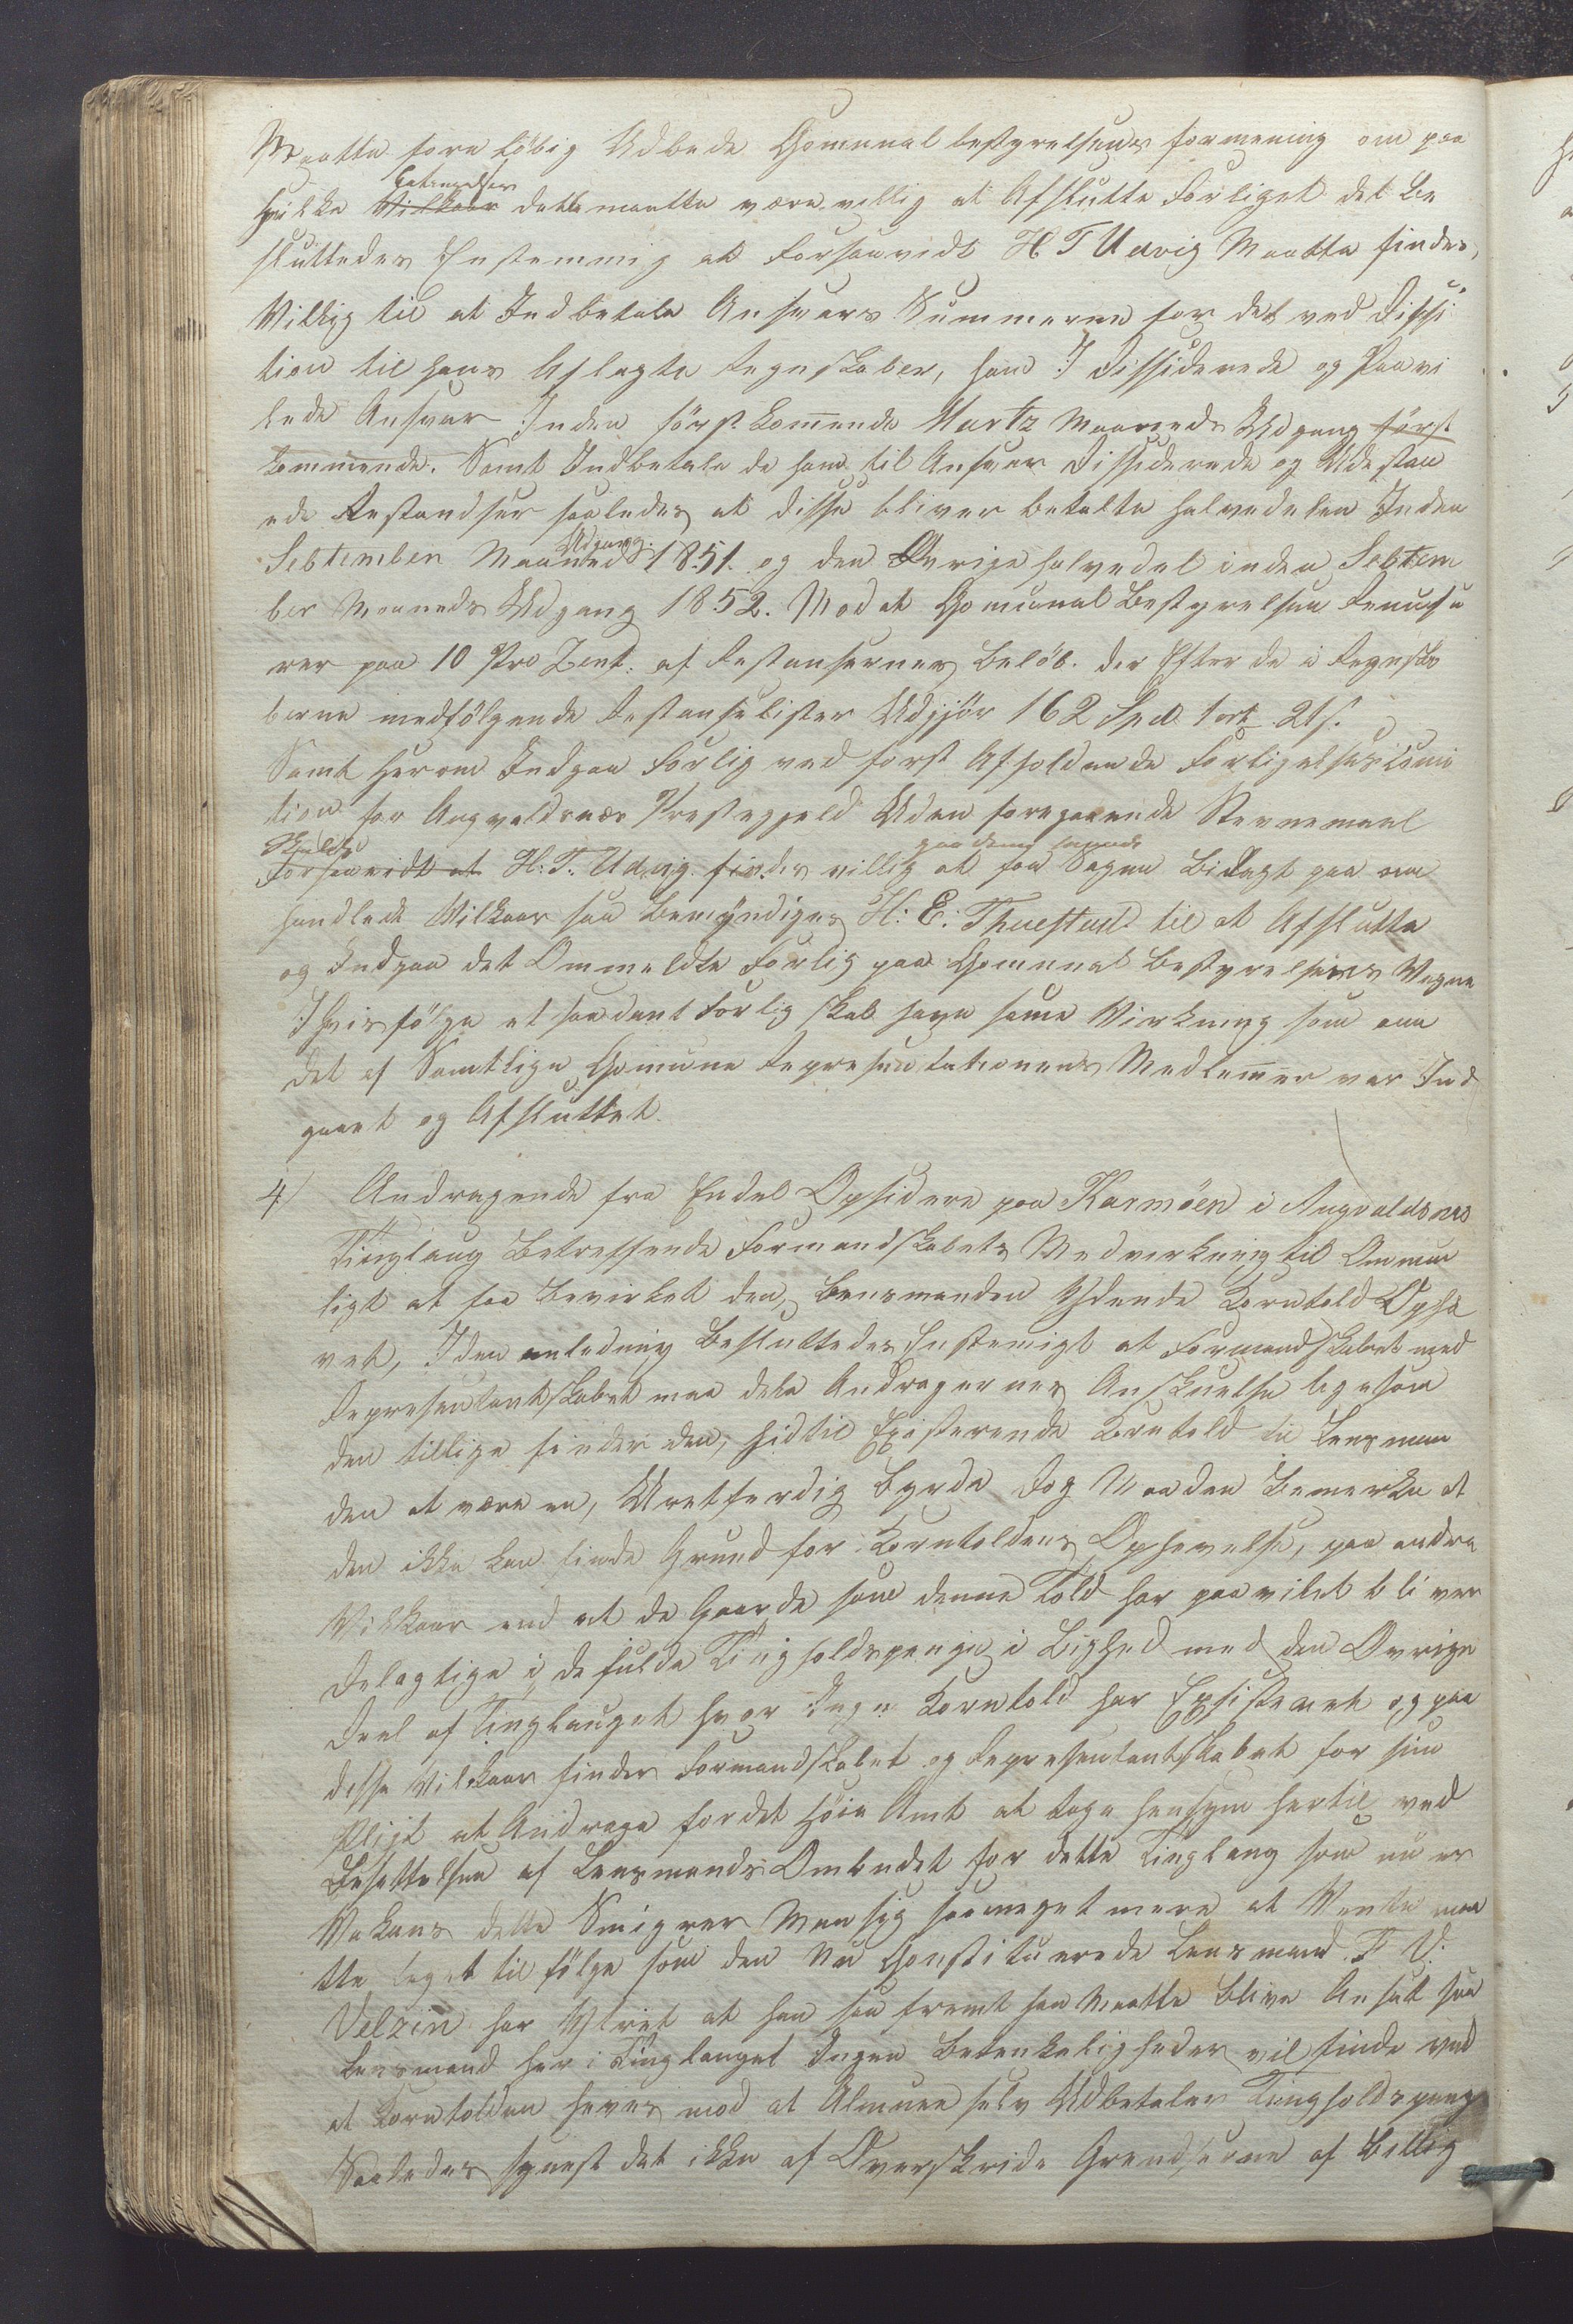 Maatte forelöbig Udbede Comunalbestyrelsens formening om paa
hvilke Betingelser dette maatte være villig at Afslutte Forliget det be
sluttedes Enstemmig at Forsaavidt H T Udvig Maatte findes,
Villig til at Indbetale Ansvars Summerne for det ved Dissi
tion til hans Aflagte Regnskaber, som I Dissiderede og Paavi
lede Ansvar Inden först kommende Martz Maaneds Udgang först
kommende. Samt Indbetale de ham til Ansvar Dissiderede og Udestaa
ede Restandser saaledes at disse bliver betalte halvedelen Inden
Sebtember Maaneds Udgang 1851. og den Øvrige halvedel inden Sebtem
ber Maaneds Udgang 1852. Mod at Comunal Bestyrelsen Renunse
rer paa 10 Pro Zent. af Restansernes Belöb. der Efter de i Regnska
berne medfölgende Restanselister Udgjör 162 Spd 1 ort 21 s.
Samt herom Indgaa Forlig ved först Afholdende Forligelseskomi
tion for Augvaldsnæs Prestegjeld Uden foregaaende Stevnemaal
Skulde H. T. Udvig findes villig at faa Sagen Bilagt paa om
handlede Vilkaar saa bemyndiges H: E: Thuestad til at Afslutte
og Indgaa det Ommeldte Forlig paa Comunal Bestyrelsens Vegne
I hvis fölge et saadant Forlig skal have same Virkning som om
det af Samtlige Comune Representationens Medlemer var Ind
gaaet og Afsluttet.
4/ Andragende fra Endel Opsidere paa Karmöen i Augvaldsnes
Tinglaug Betreffende Formandskabets Medvirkning til Ommue
ligt at faa Bevirket den, Lensmanden Ydende Korntold Ophæ
vet, I den anledning Besluttedes Enstemigt at Formandskabet med
Representantskabet maa dele Andragernes Anskuelse ligesom
den tillige finder den, hidtil Existerende Korntold til Lensman
den at være en, Uretferdig byrde dog Maa den Bemerke at
den ikke kan finde Grund for Korntoldens Ophevelse, paa andre
Vilkaar end at de Gaarde som denne Told har paavilet bliver
delagtige i de fulde Tingholdspenge i Lighed med den Øvrige
Deel af Tinglauget hvor Ingen Korntold har Exsisteret og paa
disse Vilkaar finder Formandskabet og Representantskabet for sin
Pligt at Andrage for det höie Amt at tage hensyn hertil ved
Besettelsen af Lensmands Ombudet for dette Tinglaug som nu er
Vakans dette Smigrer Man sig saameget mere at Vente maa
tte taget til fölge som den Nu Constituerede Lensmand F V:
Velzin har Ytret at han saa fremt han Maatte blive Ansat som
Lensmand her i Tinglauget Ingen Betenkeligheder vil finde ved
at Korntolden heves mod at Almuen selv Udbetaler Tingholdspenge
Saaledes synest det ikke at Overskride Grendserne af Billig